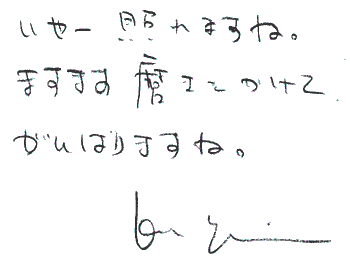 いやー照れますね。
ますます磨きをかけて
がんばりますね。